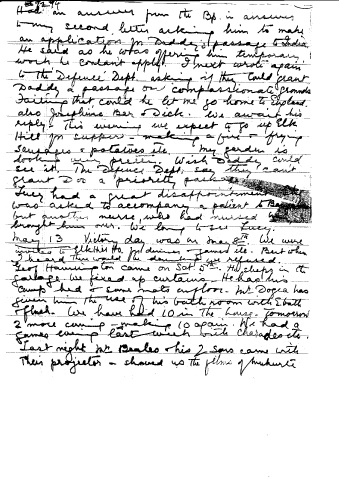 Had an answer from the Bp. in answer
to my second letter asking him to make
an application for Daddy's passage to India.
He said as he was offering him temporary
work he couldn't apply. I next wrote again
to the Defence Dept. asking if they could grant
Daddy a passage on compassionate grounds
Failing that could he let me go home to England.
also Josephine Bar & Dick. We await his
reply. This evening we expect to go up Elk
Hill for supper - making a fire & frying
sausages & potatoes etc. My garden is
looking very pretty. Wish Daddy could
see it. The Defence Dept. say they can't
grant Doc a priority package
Lucy had a great disappointment
was asked to accompany a patient to
but another nurse, who had nursed
brought him over. We long to see Lucy.
May 13 Victory day was on May 8th. We were
invited to for dinner games etc. But when
I heard there would be dancing we refused
Geof Hannington came on Sat 5th. He sleeps in the
We fixed up curtains. He has his
camp bed & some mats on floor. Mr. Dogra has
given him the use of his bath room with E bath
& flush. We have had 10 in the house. Tomorrow
2 more coming - making 10 again. We had a
games evening last week with charades etc.
Last night Mr. Beales & his 2 sons came with
their projector & showed us the films of